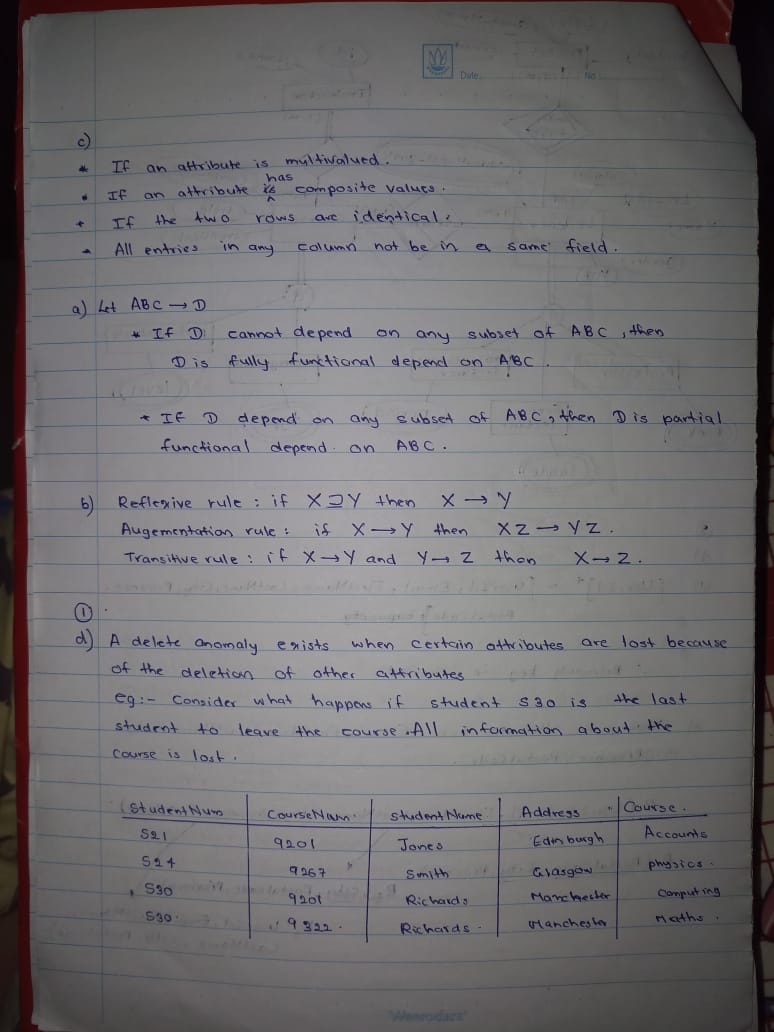 Date:
No
c)
* If an attribute is multivalued.
* If an attribute is has composite values.
* If the two rows are identical.
* All entries in any column not be in a same field.
a) Let ABC → D
* If D cannot depend on any subset of ABC, then
D is fully functional depend on ABC.
* If D depend on any subset of ABC, then D is partial
functional depend on ABC.
b) Reflexive rule : if X ⊇ Y then X → Y
Augementation rule : if X → Y then XZ → YZ.
Transitive rule : if X → Y and Y → Z then X → Z.
①
d) A delete anomaly exists when certain attributes are lost because
of the deletion of other attributes
eg:- Consider what happens if student S30 is the last
student to leave the course. All information about the
course is lost.
StudentNum CourseNum StudentName Address Course.
S21 9201 Jones Edinburgh Accounts
S24 9267 Smith Glasgow physics.
S30 9201 Richards Manchester Computing
S30 9322. Richards. Manchester Maths.